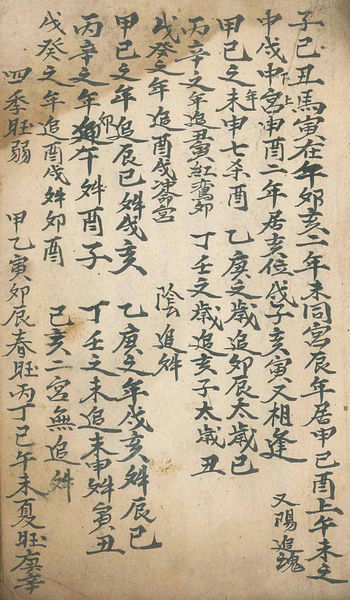 子巳丑馬寅在年卯亥二年未同宮辰年居甲巳酉上午未之
申戌申宮申酉二年居吉位戊子亥寅又相逢 又陽追魂
甲己之未申七杀酉 乙庚之歲追卯辰太歲巳
丙辛之年追丑寅紅鸞卯 丁壬之歲追亥子太歲丑
戊癸之年追酉戌 陰追
甲己之年追辰巳 戌亥 乙庚之年戌亥 辰巳
丙辛之年 午 酉子 丁壬之未追未申 寅丑
戊癸之年追酉戌 卯酉 己亥二宮無追
四季旺弱 甲乙寅卯辰春旺丙丁巳午未夏旺庚辛